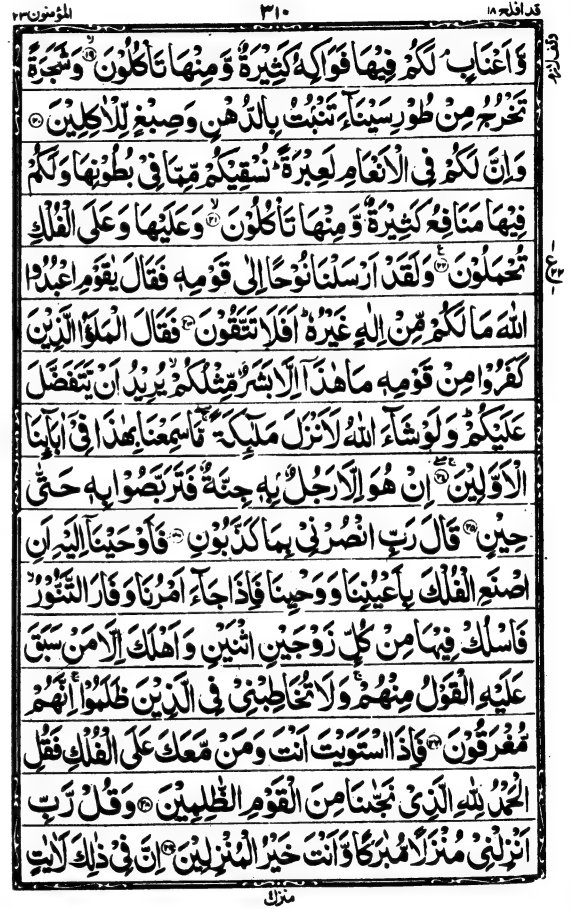 قد افلح ١٨ ٣١٠ المؤمنون ٢٣
وَّاَعْنَابٍ ۘ لَكُمْ فِيْهَا فَوَاكِهُ كَثِيْرَةٌ وَّمِنْهَا تَاْكُلُوْنَ ۙ۝۱۹ وَشَجَرَةً
تَخْرُجُ مِنْ طُوْرِ سَيْنَآءَ تَنْۢبُتُ بِالدُّهْنِ وَصِبْغٍ لِّلْاٰكِلِيْنَ ۝۲۰
وَاِنَّ لَكُمْ فِى الْاَنْعَامِ لَعِبْرَةً ؕ نُسْقِيْكُمْ مِّمَّا فِىْ بُطُوْنِهَا وَلَكُمْ
فِيْهَا مَنَافِعُ كَثِيْرَةٌ وَّمِنْهَا تَاْكُلُوْنَ ۙ۝۲۱ وَعَلَيْهَا وَعَلَى الْفُلْكِ
تُحْمَلُوْنَ ۝۲۲ۧ وَلَقَدْ اَرْسَلْنَا نُوْحًا اِلٰى قَوْمِهٖ فَقَالَ يٰقَوْمِ اعْبُدُوا
اللّٰهَ مَا لَكُمْ مِّنْ اِلٰهٍ غَيْرُهٗ ؕ اَفَلَا تَتَّقُوْنَ ۝۲۳ فَقَالَ الْمَلَؤُا الَّذِيْنَ
كَفَرُوْا مِنْ قَوْمِهٖ مَا هٰذَاۤ اِلَّا بَشَرٌ مِّثْلُكُمْ ۙ يُرِيْدُ اَنْ يَّتَفَضَّلَ
عَلَيْكُمْ ؕ وَلَوْ شَآءَ اللّٰهُ لَاَنْزَلَ مَلٰٓئِكَةً ۖۚ مَّا سَمِعْنَا بِهٰذَا فِىْۤ اٰبَآئِنَا
الْاَوَّلِيْنَ ۚ۝۲۴ اِنْ هُوَ اِلَّا رَجُلٌۢ بِهٖ جِنَّةٌ فَتَرَبَّصُوْا بِهٖ حَتّٰى
حِيْنٍ ۝۲۵ قَالَ رَبِّ انْصُرْنِىْ بِمَا كَذَّبُوْنِ ۝۲۶ فَاَوْحَيْنَاۤ اِلَيْهِ اَنِ
اصْنَعِ الْفُلْكَ بِاَعْيُنِنَا وَوَحْيِنَا فَاِذَا جَآءَ اَمْرُنَا وَفَارَ التَّنُّوْرُ ۙ
فَاسْلُكْ فِيْهَا مِنْ كُلٍّ زَوْجَيْنِ اثْنَيْنِ وَاَهْلَكَ اِلَّا مَنْ سَبَقَ
عَلَيْهِ الْقَوْلُ مِنْهُمْ ۚ وَلَا تُخَاطِبْنِىْ فِى الَّذِيْنَ ظَلَمُوْا ۚ اِنَّهُمْ
مُّغْرَقُوْنَ ۝۲۷ فَاِذَا اسْتَوَيْتَ اَنْتَ وَمَنْ مَّعَكَ عَلَى الْفُلْكِ فَقُلِ
الْحَمْدُ لِلّٰهِ الَّذِىْ نَجّٰىنَا مِنَ الْقَوْمِ الظّٰلِمِيْنَ ۝۲۸ وَقُلْ رَّبِّ
اَنْزِلْنِىْ مُنْزَلًا مُّبٰرَكًا وَّاَنْتَ خَيْرُ الْمُنْزِلِيْنَ ۝۲۹ اِنَّ فِىْ ذٰلِكَ لَاٰيٰتٍ